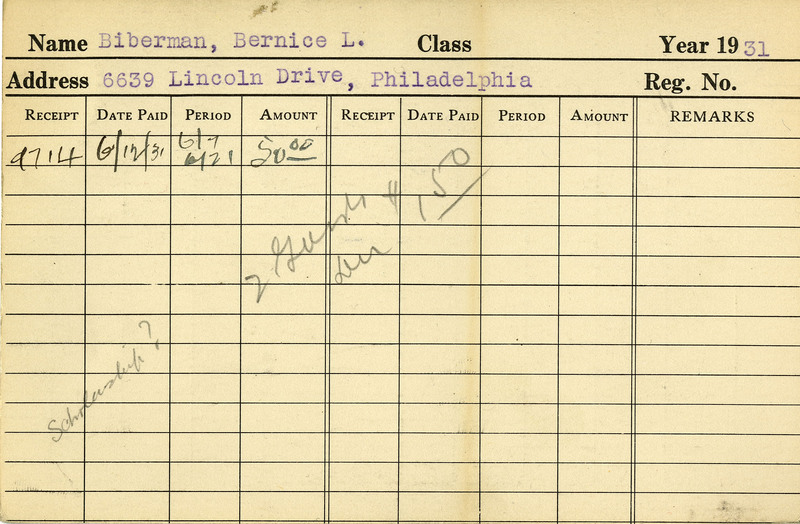 Name Biberman, Bernice L. Class Year 1931
Address 6639 Lincoln Drive, Philadelphia Reg. No.
RECEIPT DATE PAID PERIOD AMOUNT RECEIPT DATE PAID PERIOD AMOUNT REMARKS
9714 6/12/31 6/7 6/21 50 00
2 Guests
due $1.50
Scholarship?